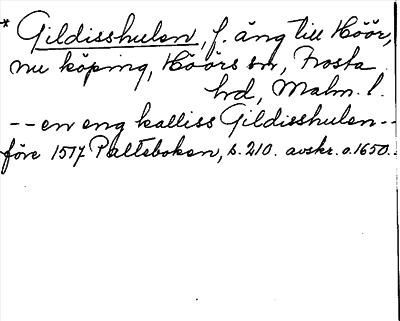 * Gildisshulen, f. äng till Höör,
nu köping, Höörs sn, Frosta
hrd, Malm. l.
-- en eng kalliss Gildisshulen --
före 1517 Palteboken, s. 210. avskr. o. 1650.